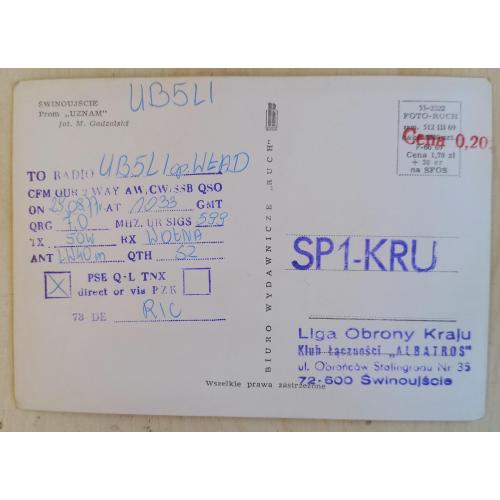 UB5LI
ŚWINOUJŚCIE
Prom „UZNAM"
fot. M. Gadzalski
TO RADIO UB5LI op. WŁAD
CFM OUR 2 WAY AW, CW/SSB QSO
ON AT 1033 GMT
QRG 7,0 MHZ. UR SIGS 599
TX 50W RX WOŁNA
ANT LW40m QTH 62
PSE Q-L TNX
direct or via PZK
73 DE RIC
BIURO WYDAWNICZE „RUCH"
53-2522
FOTO-RUCH
zam. 512 III 69
Cena 1,70 zł
+ 20 gr
na SFOS
Cena 0,20
SP1-KRU
Liga Obrony Kraju
Klub Łączności „ALBATROS"
ul. Obrońców Stalingradu Nr 35
72-600 Świnoujście
Wszelkie prawa zastrzeżone